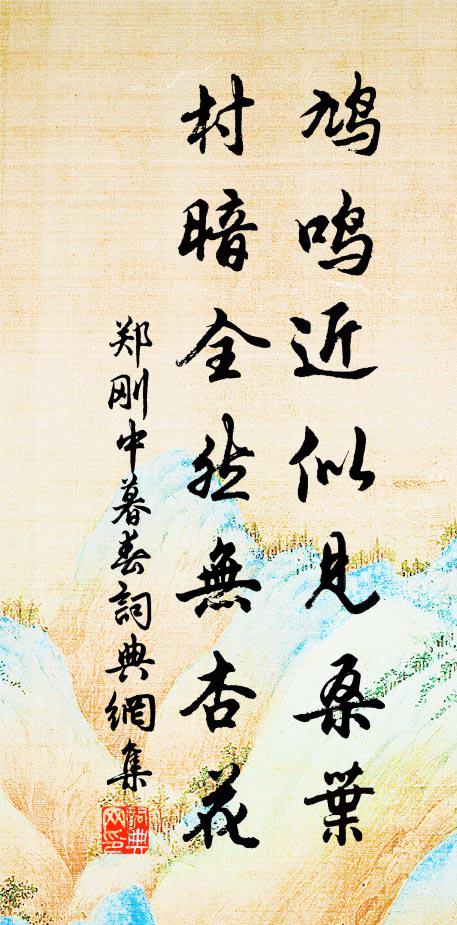 鸠鸣近似见桑葉
村暗全然無杏花
郑刚中暮春詞典網集
詞典网印